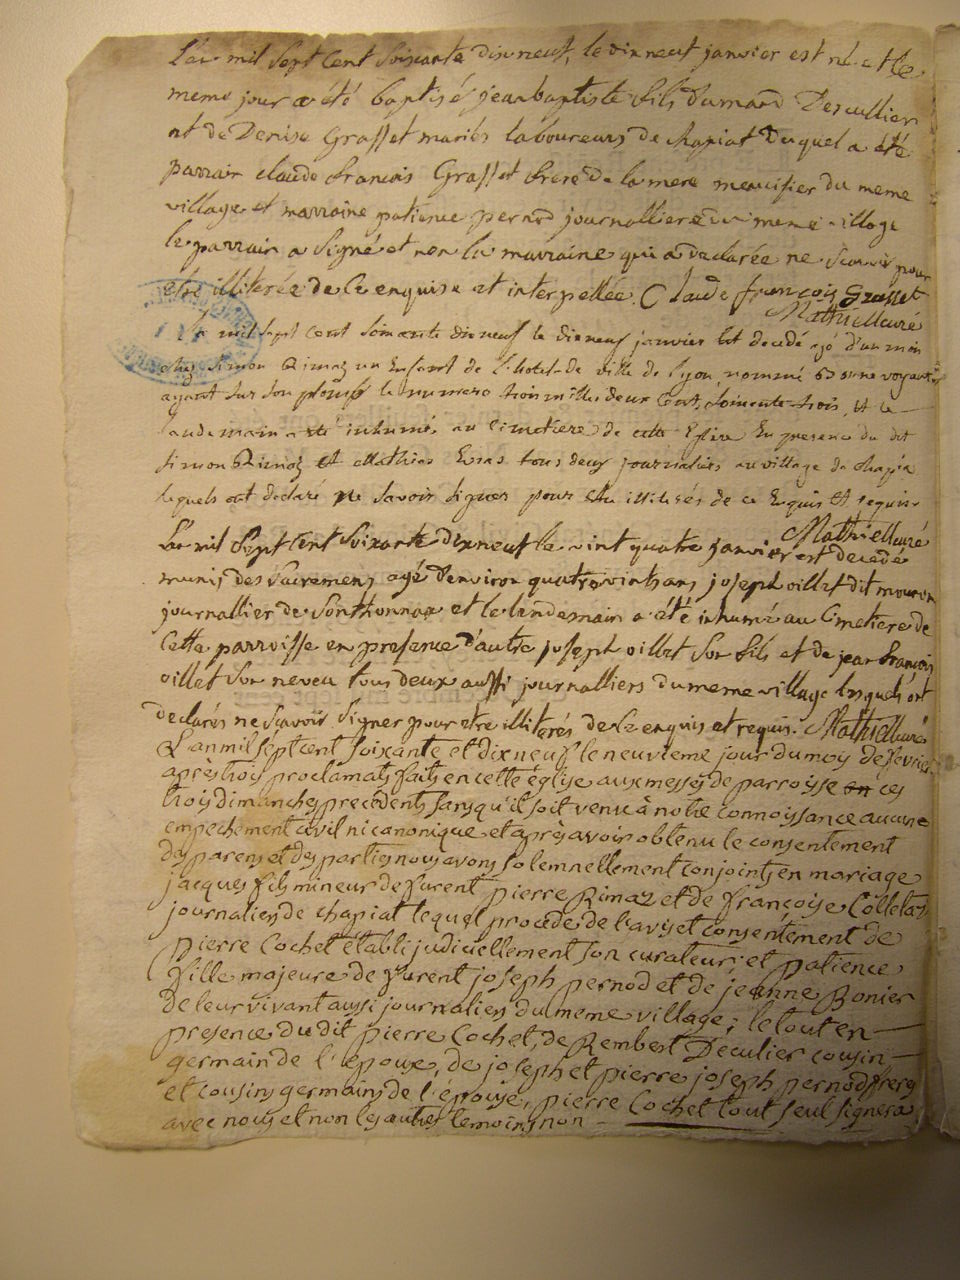 L'an mil sept cent soixante dix neuf, le dix neuf janvier est né et le
meme jour a été baptisé jean baptiste fils d'umand Descullier
et de Denise Grasset mariés laboureurs de chapiat duquel a été
parrain claude francois Grasset frere de la mere menuisier du meme
village et marraine patience pernod journalliere du meme village
le parrain a signé et non la marraine qui a declarée ne scavoir pour
etre illiterée de ce enquise et interpellée. Claude françois Grasset
Mathieu curé
L'an mil sept cent soixante dix neuf le dix neuf janvier Est decedé agé d'un mois
chez simon Rimaz un Enfant de l'hotel-de ville de lyon, nommé
ayant sur son plomb le numero trois mille deux Cent, soixante-trois, Et le
landemain a été inhumé au Cimetiere de cette Eglise En presence du dit
simon Rimaz Et Mathias tous deux journaliers au village de chapia
lequels ont declaré ne savoir signer pour être illiterés de ce Enquis Et requis.
Mathieu curé
L'an mil sept cent soixante dix neuf le vint quatre janvier est decedé
munis des sacremens agé d'environ quatre vints ans joseph oillet dit mouron
journallier de Sonthonnax et le lendemain a été inhumé au Cimetiere de
cette parroisse en presence d'autre joseph oillet son fils et de jean françois
oillet son neveu tous deux aussi journalliers du meme village lesquels ont
declarés ne scavoir signer pour etre illiterés de ce enquis et requis. Mathieu curé
L'an mil sept cent soixante et dix neuf le neuvieme jour du mois de fevrier
après trois proclamats faits en cette église aux messes de parroisse en ces
trois dimanches precédents sans qu'il soit venu à notre connoissance aucune
empechement civil ni canonique et après avoir obtenu le consentement
des parens et des parties nous avons solemnellement conjoints en mariage
jacques fils mineur de furent pierre Rimaz et de françoise Colletaz
journaliers de chapiat lequel procede de l'avis et consentement de
pierre Cochet établi judiciellement son curateur; et patience
fille majeure de furent joseph pernod et de jeanne Bonier
de leur vivant aussi journaliers du meme village; le tout en
presence du dit pierre Cochet, de Rembert Deculier cousin
germain de l'epoux, de joseph et pierre joseph pernod freres
et cousins germains de l'épouse, pierre Cochet tout seul signera
avec nous et non les autres temoins non